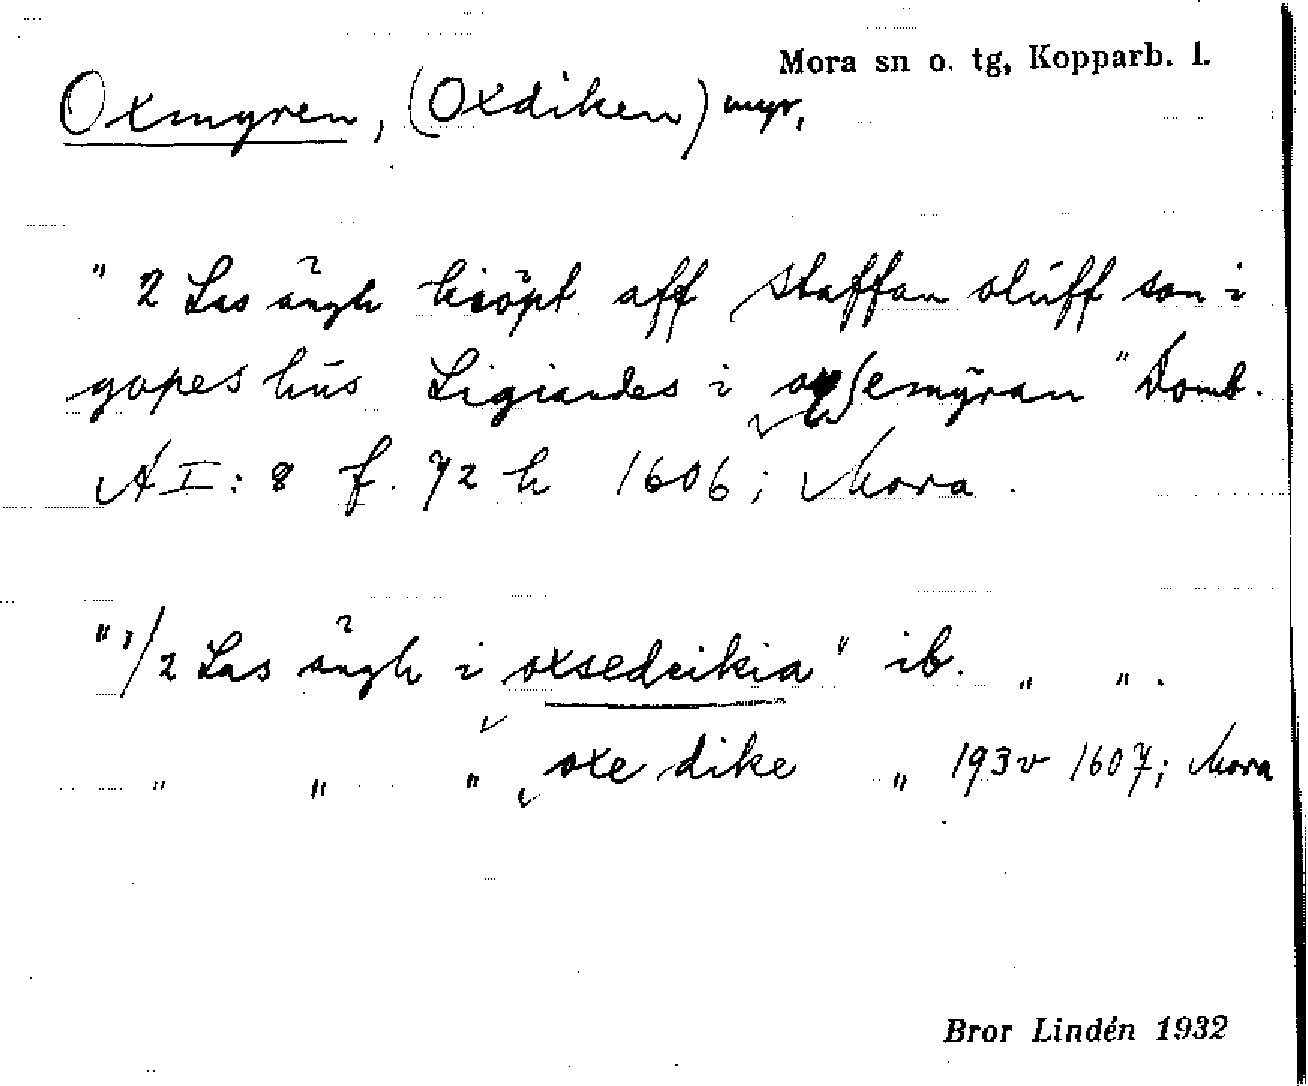 Mora sn o. tg, Kopparb. l.
Oxmyren, (Oxdiken) myr,
" 2 Las ängh kiöpt aff Staffan olúff son i
gopes hús Ligiandes i oxsemÿran " Domb.
A I: 8 f. 72 h 1606; Mora.
" 1/2 Las ängh i oxsedeikia " ib. " " .
" " " oxe dike " 193 v 1607; Mora
Bror Lindén 1932